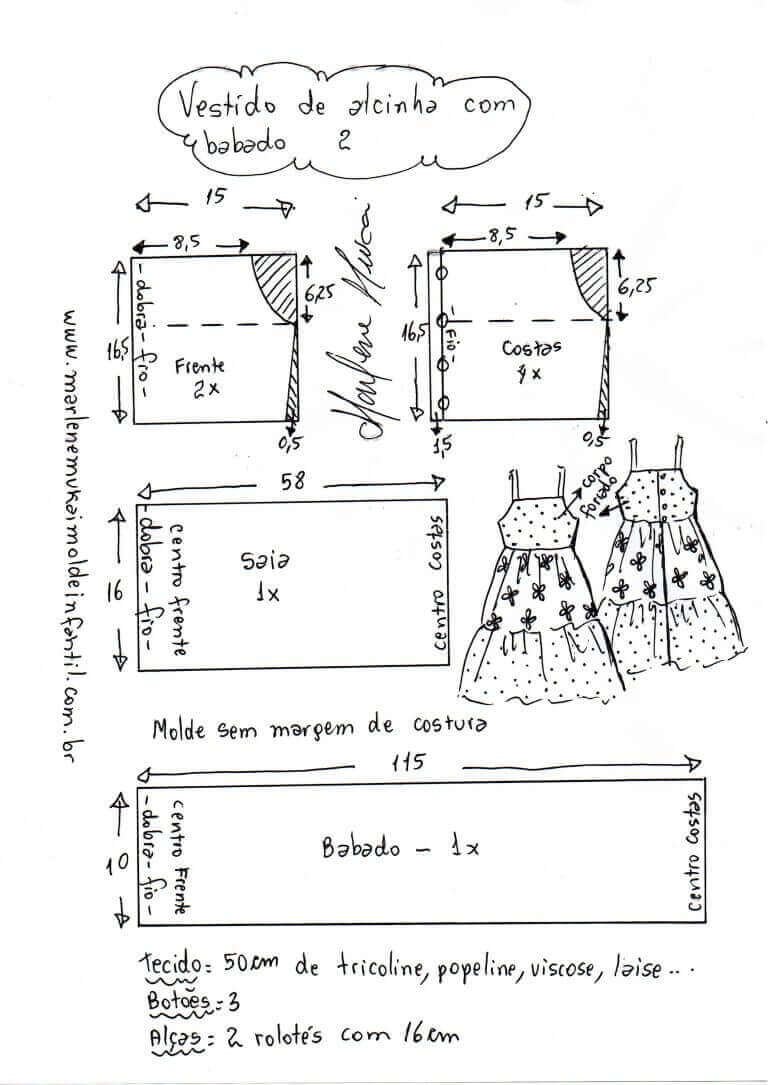 Vestido de alcinha com
babado 2
15
8,5
6,25
16,5
- dobra - fio -
Frente
2x
0,5
Marlene Mukai
15
8,5
6,25
16,5
- Fio -
Costas
4x
1,5
0,5
www.marlenemukaimoldeinfantil.com.br
58
16
- dobra - fio -
centro frente
Saia
1x
centro costas
corpo
forrado
Molde sem margem de costura
115
10
- dobra - fio -
centro Frente
Babado - 1x
centro costas
Tecido: 50cm de tricoline, popeline, viscose, laise...
Botões: 3
Alças: 2 rolotés com 16cm